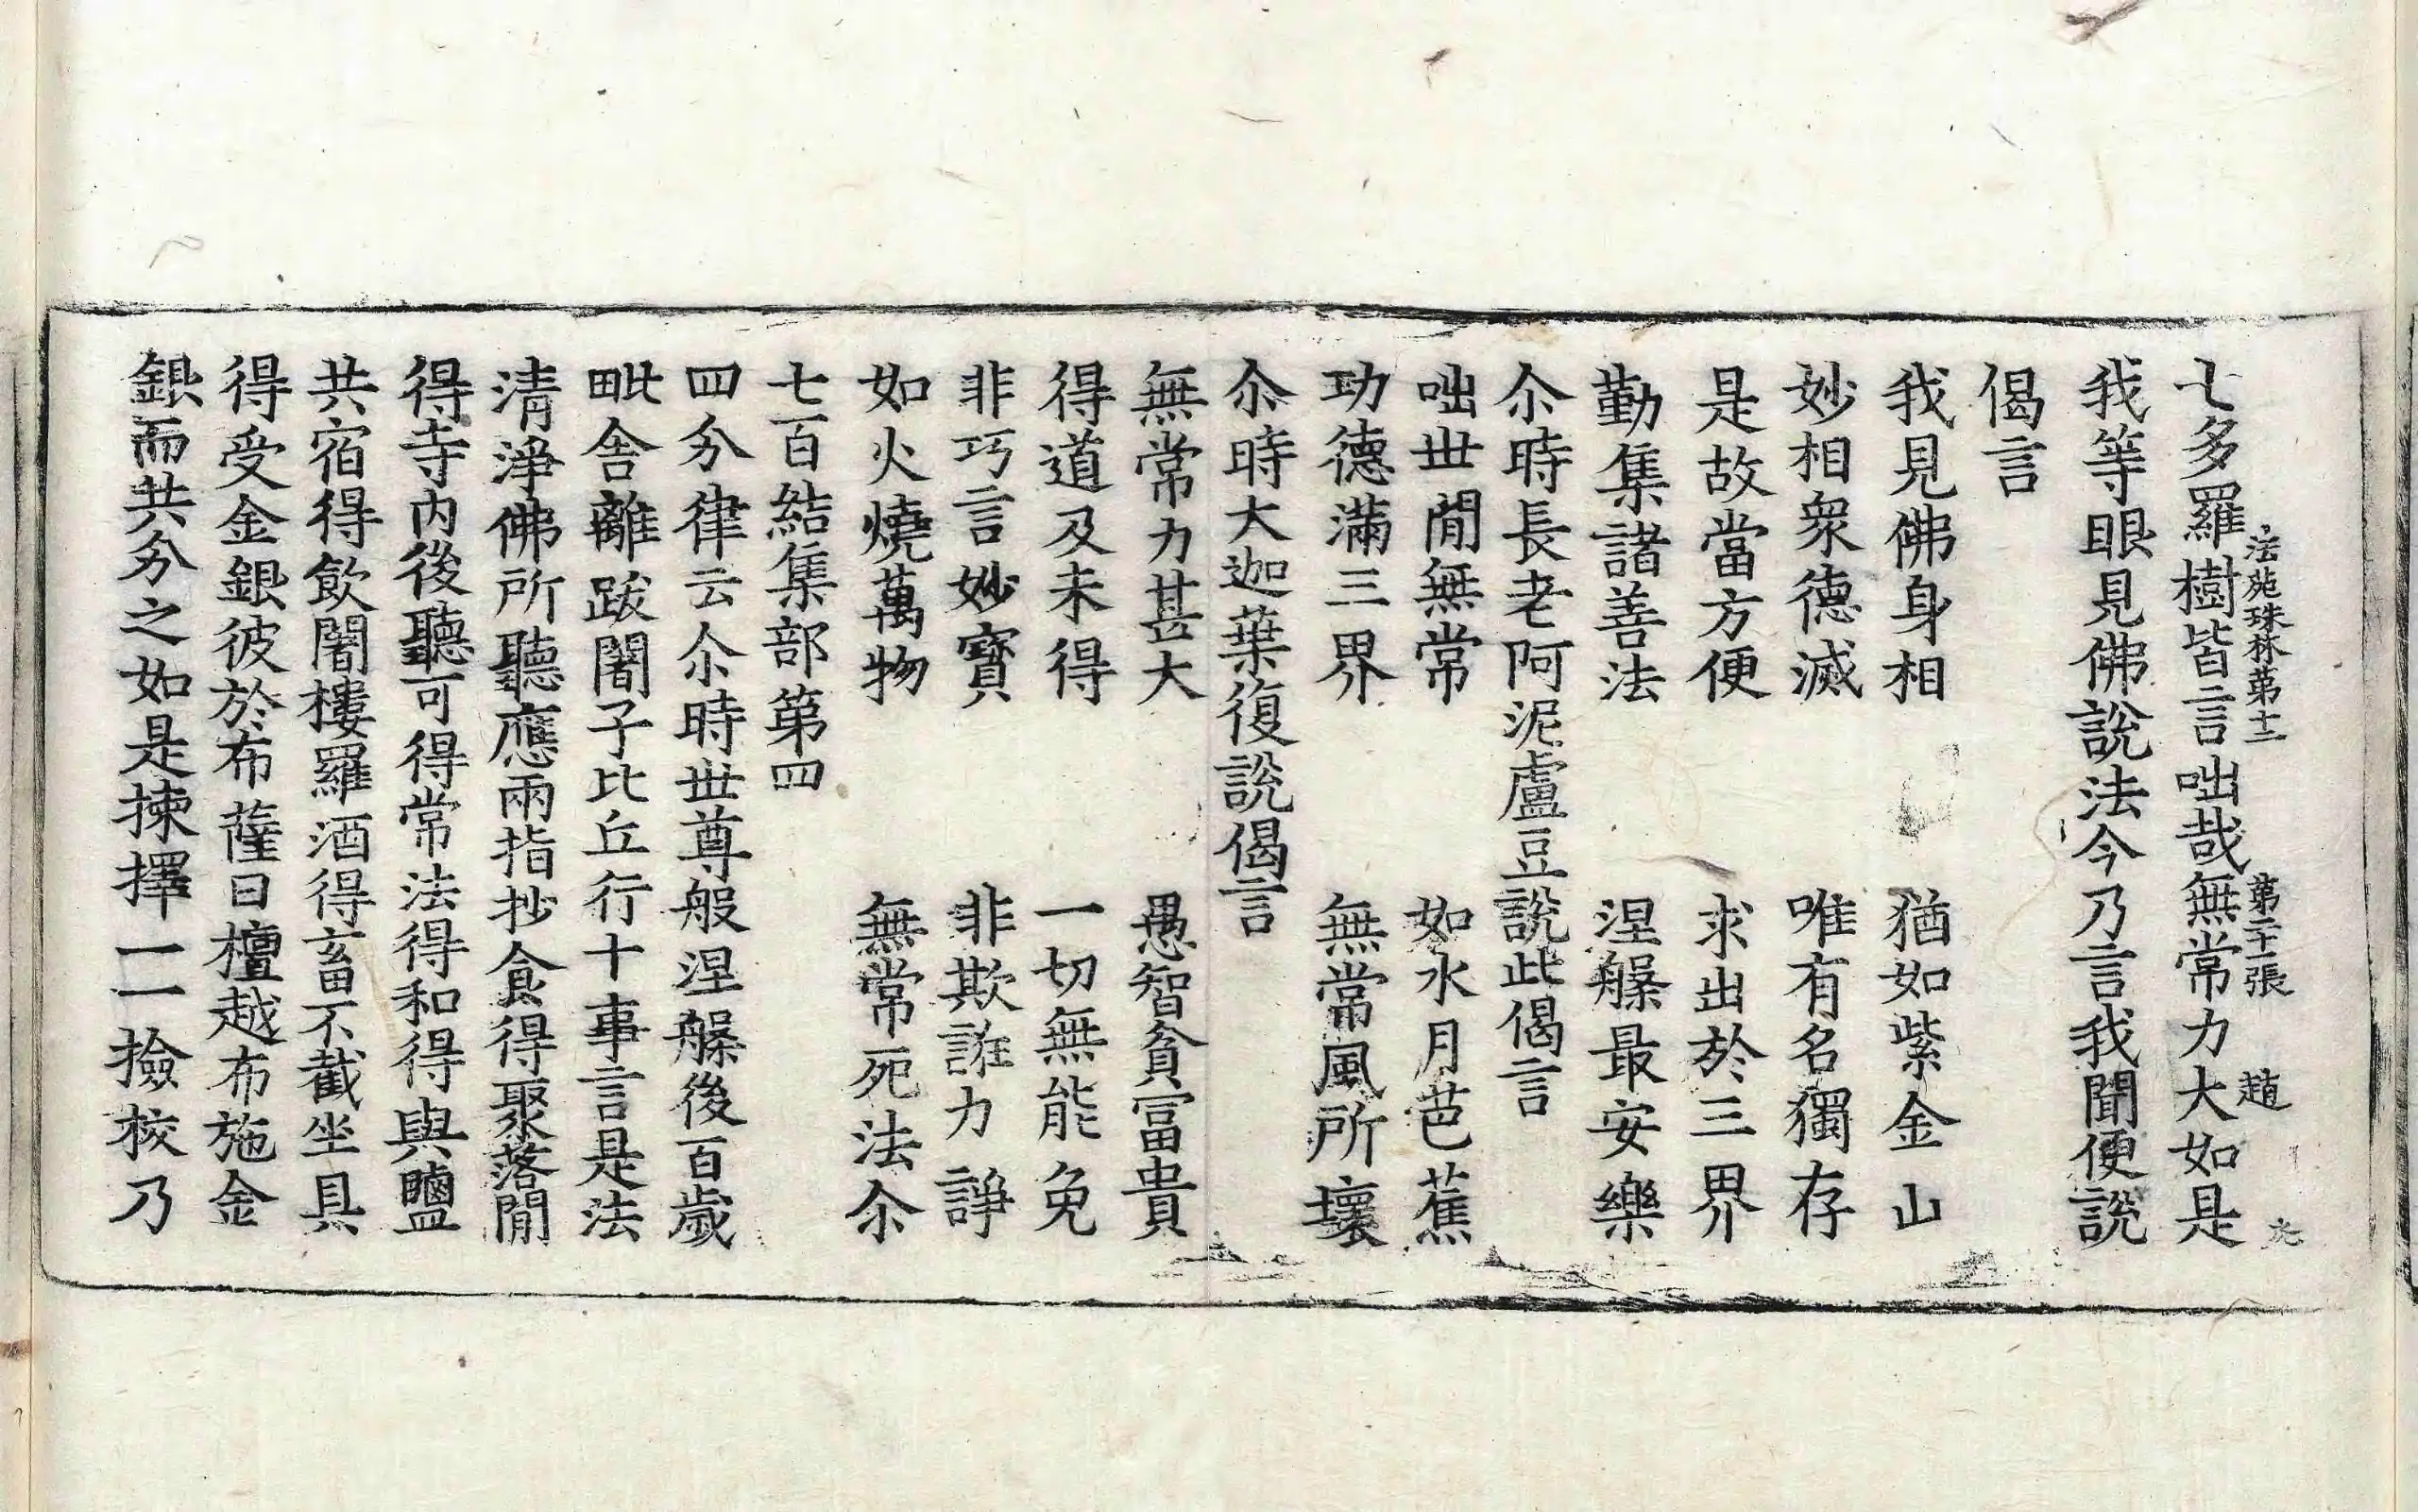 法苑珠林第十二 第二十一張 趙
七多羅樹皆言咄哉無常力大如是
我等眼見佛說法今乃言我聞便說
偈言
我見佛身相 猶如紫金山
妙相衆德滅 唯有名獨存
是故當方便 求出於三界
勤集諸善法 涅槃最安樂
尒時長老阿泥盧豆說此偈言
咄世閒無常 如水月芭蕉
功德滿三界 無常風所壞
尒時大迦葉復說偈言
無常力甚大 愚智貧冨貴
得道及未得 一切無能免
非巧言妙寶 非欺誑力諍
如火燒萬物 無常死法尒
七百結集部第四
四分律云尒時世尊般涅槃後百歲
毗舍離跋闍子比丘行十事言是法
清淨佛所聽應兩指抄食得聚落閒
得寺內後聽可得常法得和得與鹽
共宿得飲闍樓羅酒得畜不截坐具
得受金銀彼於布薩日檀越布施金
銀而共分之如是揀擇一一撿挍乃